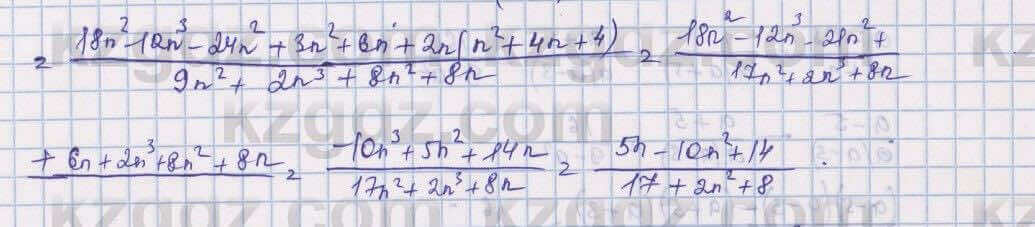 = (18n² - 12n³ - 24n² + 3n² + 6n + 2n(n² + 4n + 4)) / (9n² + 2n³ + 8n² + 8n) = (18n² - 12n³ - 21n² +) / (17n² + 2n³ + 8n)
(+ 6n + 2n³ + 8n² + 8n) / = (-10n³ + 5n² + 14n) / (17n² + 2n³ + 8n) = (5n - 10n² + 14) / (17 + 2n² + 8) .
kzgdz.com